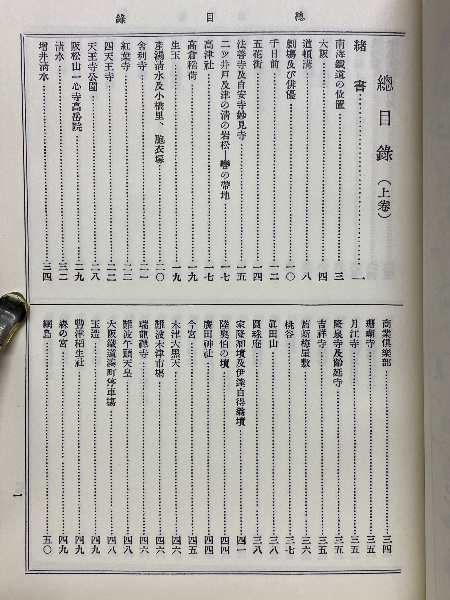 總目錄
總目錄(上卷)
緒書……一
南海鐵道の位置……三
大阪……四
道頓濠……八
劇場及び俳優……一〇
千日前……一二
五花街……一四
法善寺及自安寺妙見寺……一五
二ッ井戸及津の清の岩松—轡の帶地……一七
高津社……一七
高倉稻荷……一九
生玉……一九
產湯清水及小橋里、胞衣塚……二〇
舍利寺……二一
紅葉寺……二二
四天王寺……二二
天王寺公園……二八
阪松山一心寺高岳院……三一
清水……三二
增井清水……三四
商業俱樂部……三四
珊瑚寺……三五
月江寺……三五
隆泉寺及齡延寺……三五
吉祥寺……三五
桃谷……三七
眞田山……三八
圓珠庵……三八
家隆卿墳及伊達自得翁墳……四一
陸奧伯の墳……四四
廣田神社……四四
今宮……四五
木津大黑天……四六
難波木津市場……四六
瑞龍禪寺……四六
難波牛頭天皇……四八
大阪鐵道湊町停車場……四八
玉造……四九
豐津稻生社……四九
森の宮……四九
網島……五〇
1